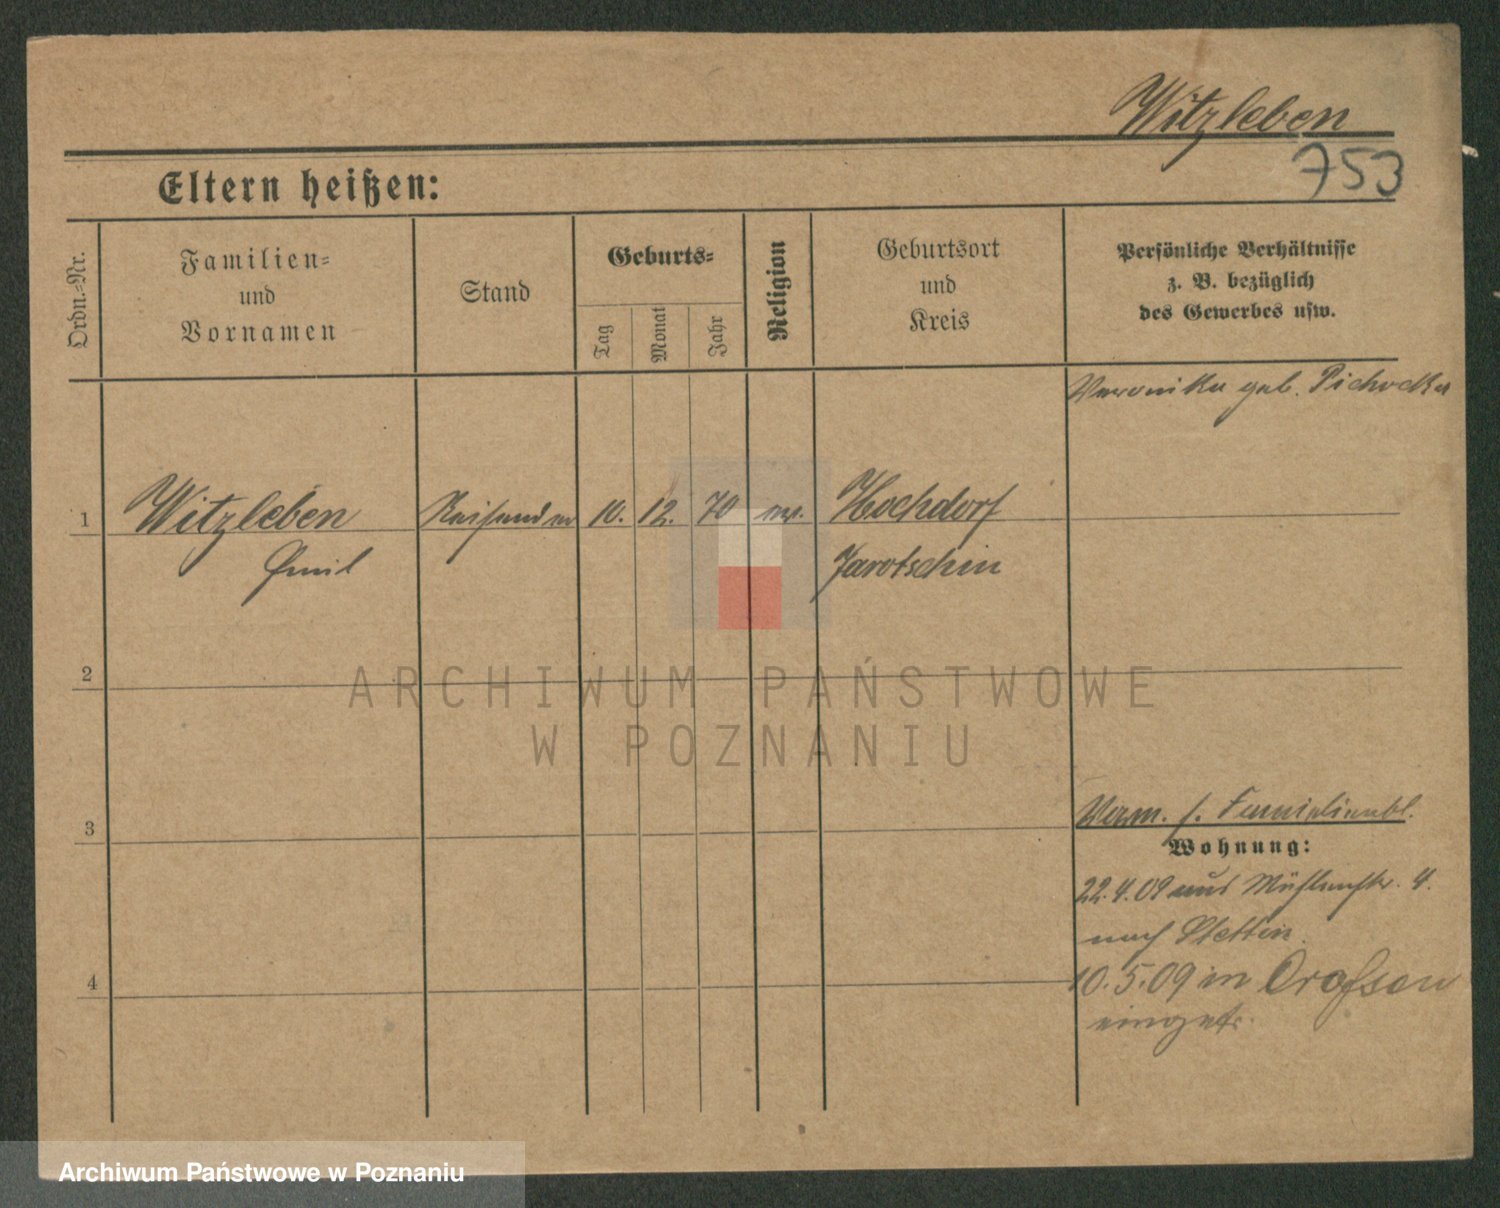 Witzleben
753
Eltern heißen:
Ordn.=Nr.
Familien=
und
Vornamen
Stand
Geburts=
Tag
Monat
Jahr
Religion
Geburtsort
und
Kreis
Persönliche Verhältnisse
z. B. bezüglich
des Gewerbes usw.
Veronika geb. Pichocka
1
Witzleben
Emil
Reisender
10.
12.
70
ev.
Hochdorf
Jarotschin
2
3
4
Verm. s. Familienbl.
Wohnung:
22.4.09 aus Mühlenstr. 4.
nach Stettin
10.5.09 in
ARCHIWUM PAŃSTWOWE
W POZNANIU
Archiwum Państwowe w Poznaniu